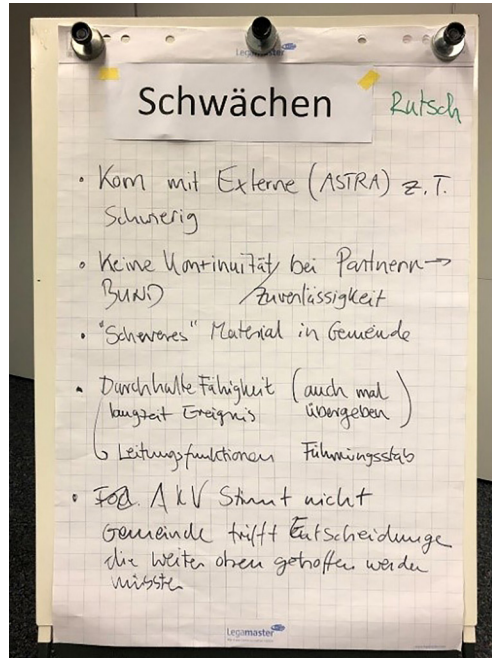 Legamaster
Schwächen
Rutsch
• Kom mit Externe (ASTRA) z.T.
Schwierig
• Keine Kontinuität/ bei Partnern →
BUND /Zuverlässigkeit
• "Schweres" Material in Gemeinde
• Durchhalte Fähigkeit (auch mal
langzeit Ereignis übergeben)
↳ Leitungsfunktionen Führungsstab
• AKV Stimmt nicht
Gemeinde trifft Entscheidunge
die weiter oben getroffen werden
müsste
Legamaster